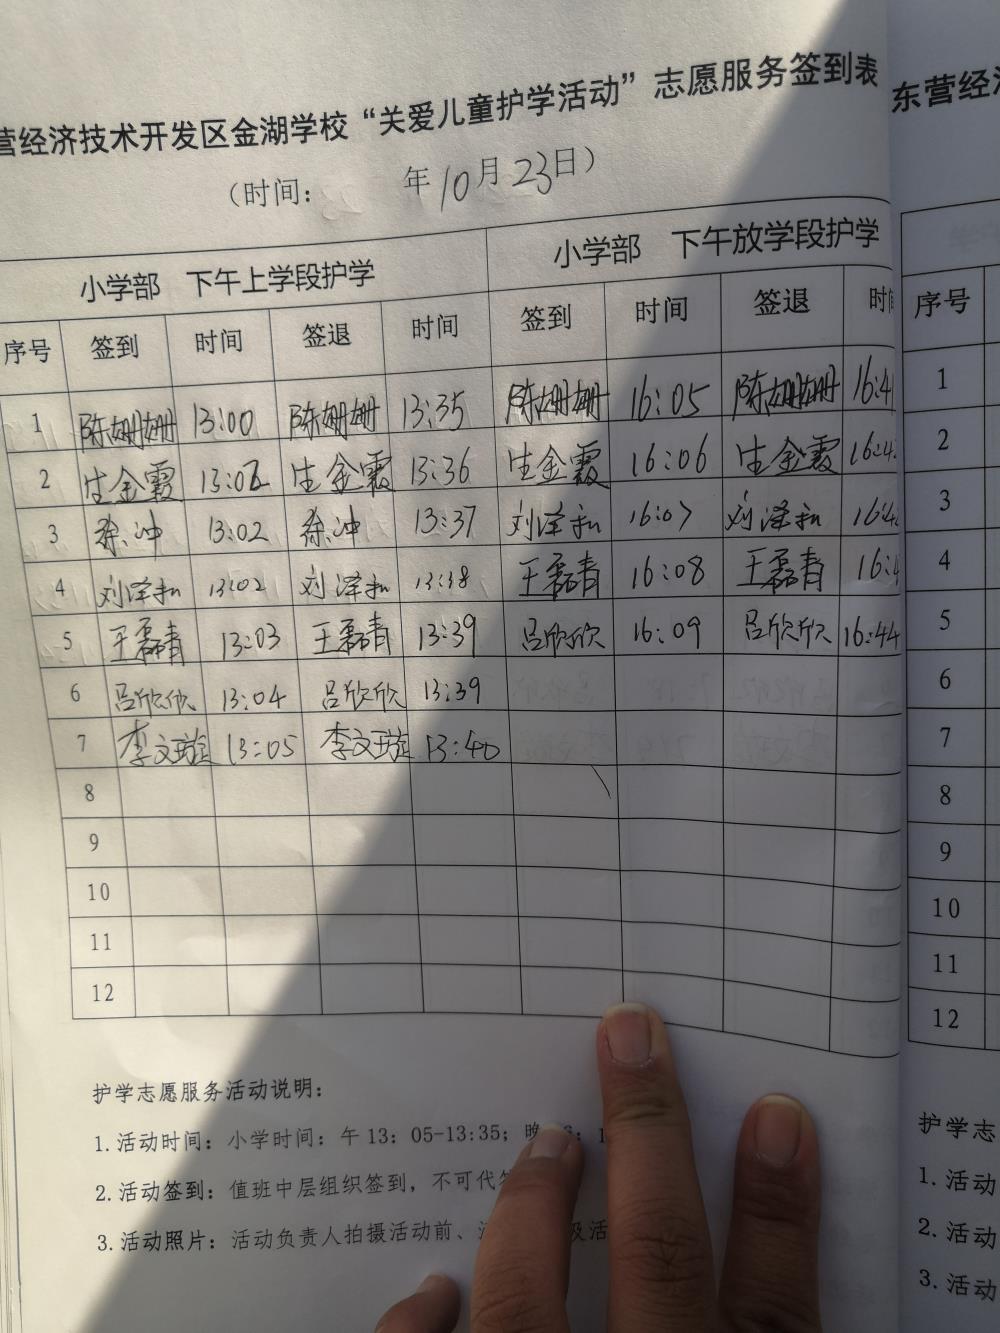 营经济技术开发区金湖学校“关爱儿童护学活动”志愿服务签到表
（时间： 年10月23日）
小学部 下午上学段护学 小学部 下午放学段护学
序号 签到 时间 签退 时间 签到 时间 签退 时
1 陈姗姗 13:00 陈姗姗 13:35 陈姗姗 16:05 陈姗姗 16:4
2 生金霞 13:02 生金霞 13:36 生金霞 16:06 生金霞 16:4
3 徐冲 13:02 徐冲 13:37 刘泽和 16:07 刘泽和 16:4
4 刘泽和 13:02 刘泽和 13:38 王磊青 16:08 王磊青 16:4
5 王磊青 13:03 王磊青 13:39 吕欣欣 16:09 吕欣欣 16:44
6 吕欣欣 13:04 吕欣欣 13:39
7 李文璇 13:05 李文璇 13:40
8
9
10
11
12
护学志愿服务活动说明：
1.活动时间：小学时间：午13：05-13:35；晚 6：1
2.活动签到：值班中层组织签到，不可代
3.活动照片：活动负责人拍摄活动前、 及活
东营经济
序号
1
2
3
4
5
6
7
8
9
10
11
12
护学志
1.活动
2.活动
3.活动